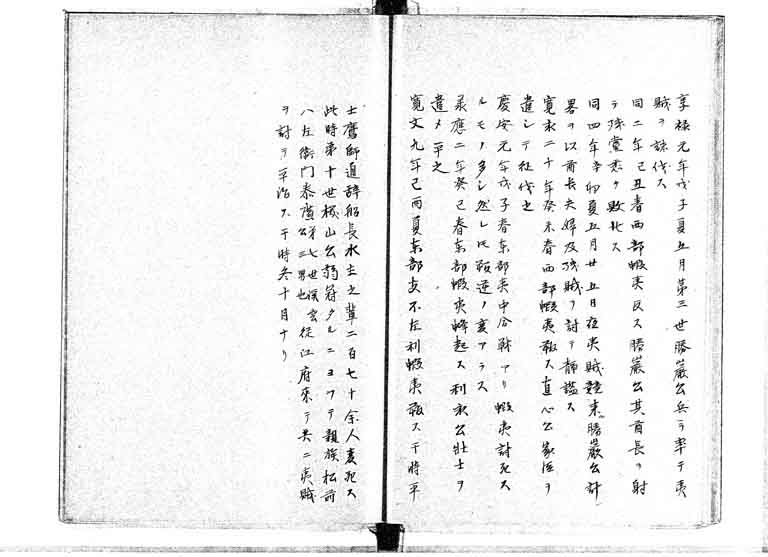 享禄元年戊子夏五月第三世勝巌公兵ヲ率テ夷
賊ヲ誅伐ス
同二年己丑春西部蝦夷反ス勝巌公其酋長ヲ射
テ残黨悉ク敗北ス
同四年辛卯夏五月廿五日夜夷賊競来勝巌公計
畧ヲ以酋長夫婦及残賊ヲ討テ静謐ス
寛永二十年癸未春西部蝦夷叛ス直心公家臣ヲ
遣シテ征伐之
慶安元年戊子春東部夷中合戦アリ蝦夷討死ス
ルモノ多シ然レ𪜈叛逆ノ変アラス
承應二年癸巳春東部蝦夷蜂起ス利永公壮士ヲ
遣メ平之
寛文九年己酉夏東部支不左利蝦夷叛ス于時平
士鷹師通辞船長水主之輩二百七十余人変死ス
此時第十世桜山公弱冠タルニヨツテ親族松前
八左衛門泰廣公第七世渓雲三男也従江府来テ共ニ夷賊
ヲ討テ平治ス于時冬十月ナリ